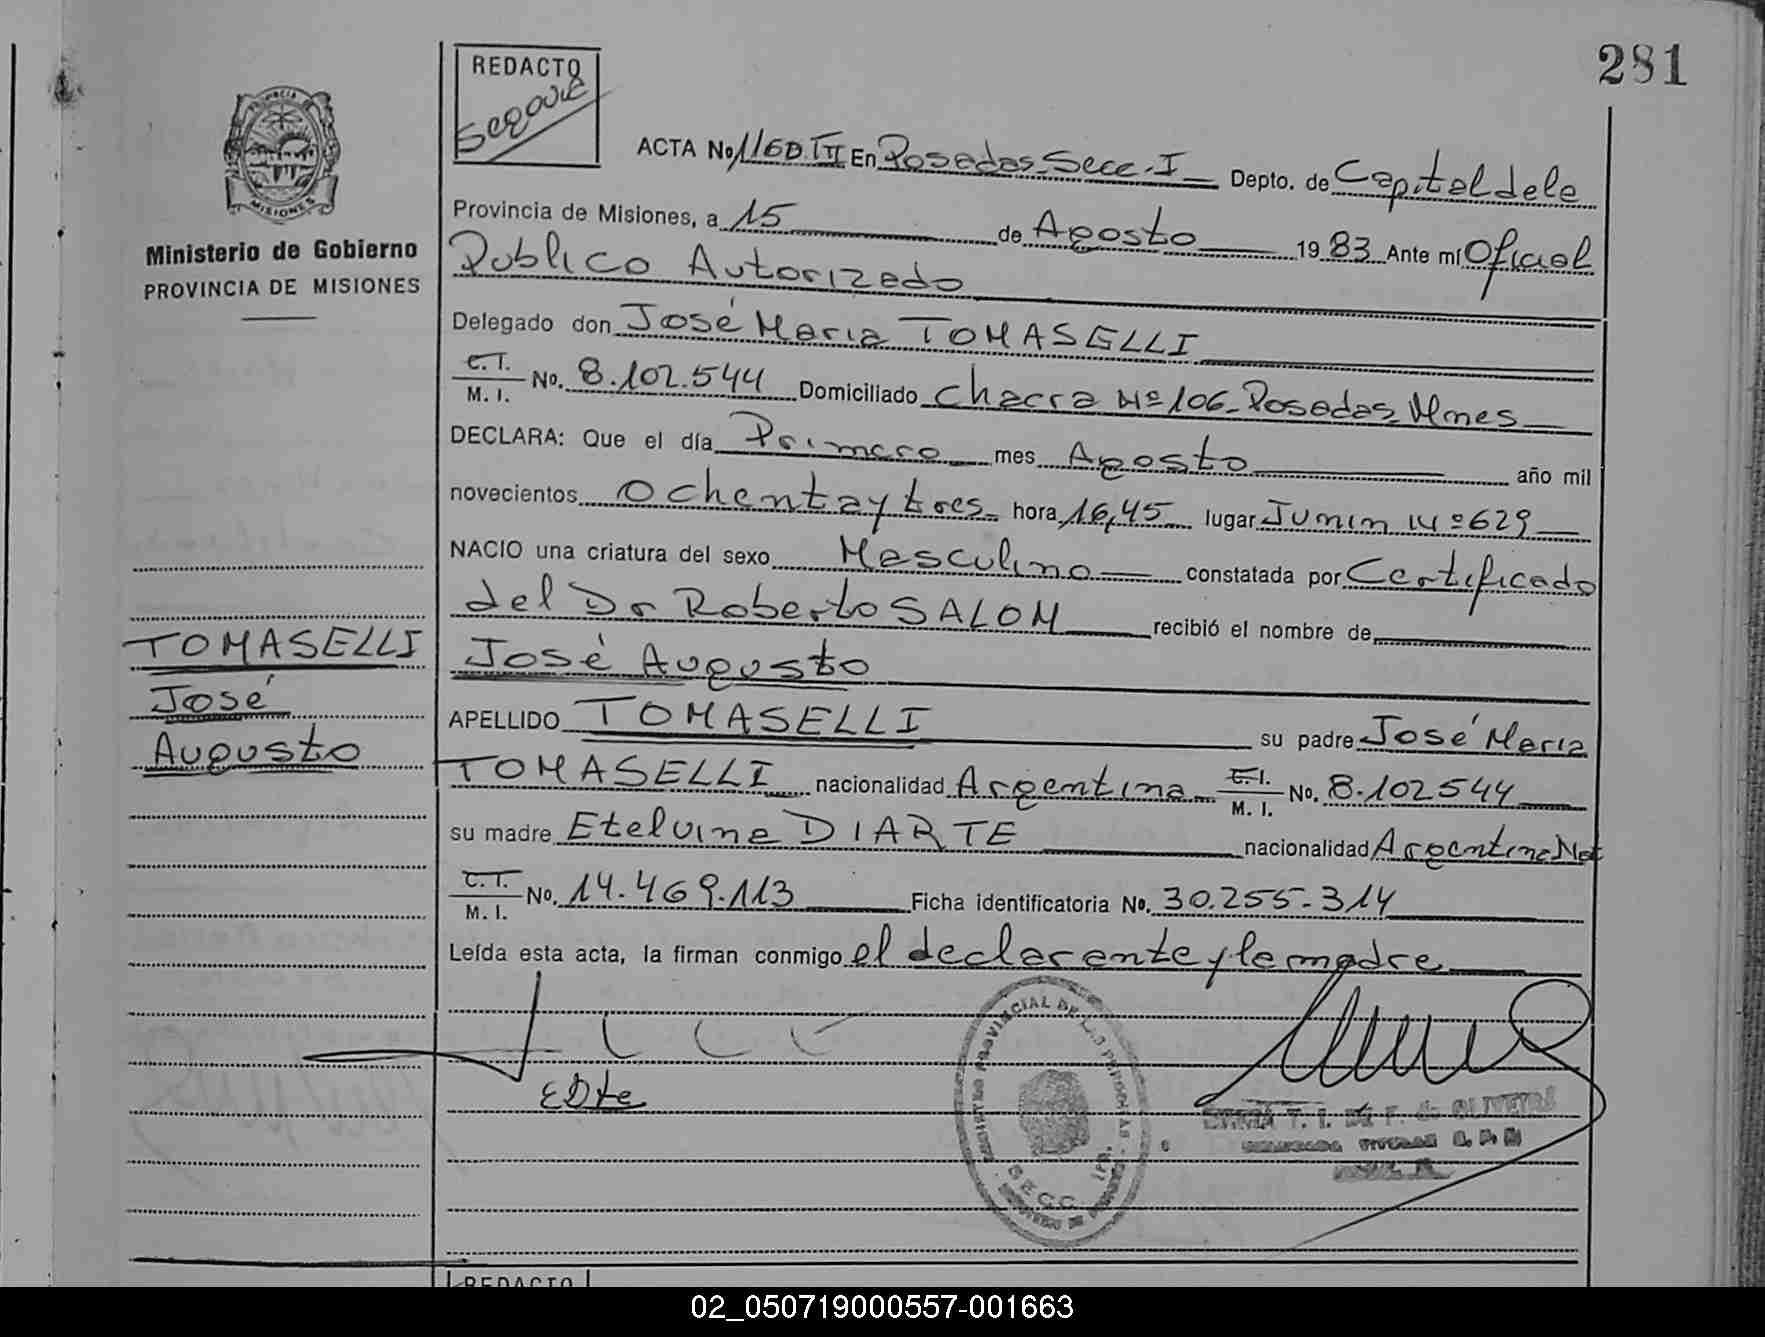 281
REDACTO
Segovie
Ministerio de Gobierno
PROVINCIA DE MISIONES
ACTA No. 1160.TII En Posadas Secc. I Depto. de Capital de la
Provincia de Misiones, a 15 de Agosto 1983 Ante mí Oficial
Publico Autorizado
Delegado don José Maria TOMASELLI
C.I. M. I. No. 8.102.544 Domiciliado Chacra Nº 106 - Posadas Mnes
DECLARA: Que el día Primero mes Agosto año mil
novecientos Ochenta y tres hora 16,45 lugar Junin Nº 629
NACIO una criatura del sexo Masculino constatada por Certificado
del Dr Roberto SALOM recibió el nombre de
José Augusto
TOMASELLI
José
Augusto
APELLIDO TOMASELLI su padre José Maria
TOMASELLI nacionalidad Argentina C.I. M. I. No. 8.102544
su madre Etelvina DIARTE nacionalidad Argentina Nat
C.I. M. I. No. 14.469.113 Ficha identificatoria No. 30.255.314
Leída esta acta, la firman conmigo el declarante y la madre
EDte
SECC.
REDACTO
02_050719000557-001663